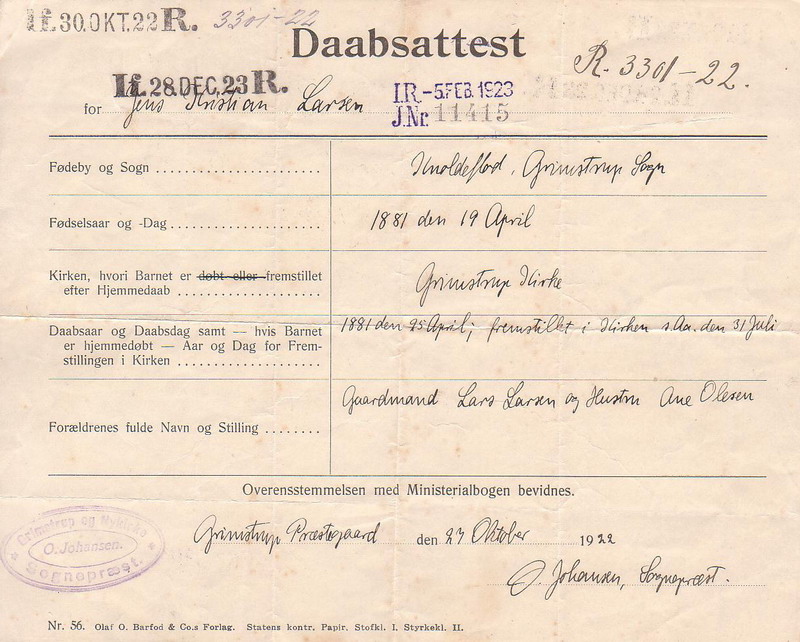 If. 30.OKT.22 R. 3301-22
Daabsattest
R. 3301-22.
If. 28.DEC.23 R.
I.R -5.FEB.1923
J.Nr. 11415
for Jens Kristian Larsen
Fødeby og Sogn Knoldeflod, Grimstrup Sogn
Fødselsaar og -Dag 1881 den 19 April
Kirken, hvori Barnet er døbt eller fremstillet
efter Hjemmedaab Grimstrup Kirke
Daabsaar og Daabsdag samt — hvis Barnet
er hjemmedøbt — Aar og Dag for Frem-
stillingen i Kirken
1881 den 25 April; fremstillet i Kirken s. Aa. den 31 Juli
Forældrenes fulde Navn og Stilling
Gaardmand Lars Larsen og Hustru Ane Olesen
Overensstemmelsen med Ministerialbogen bevidnes.
Grimstrup og Nykirke
O. Johansen.
Sognepræst.
Grimstrup Præstegaard den 23 Oktober 1922
O. Johansen, Sognepræst.
Nr. 56. Olaf O. Barfod & Co.s Forlag. Statens kontr. Papir. Stofkl. I. Styrkekl. II.